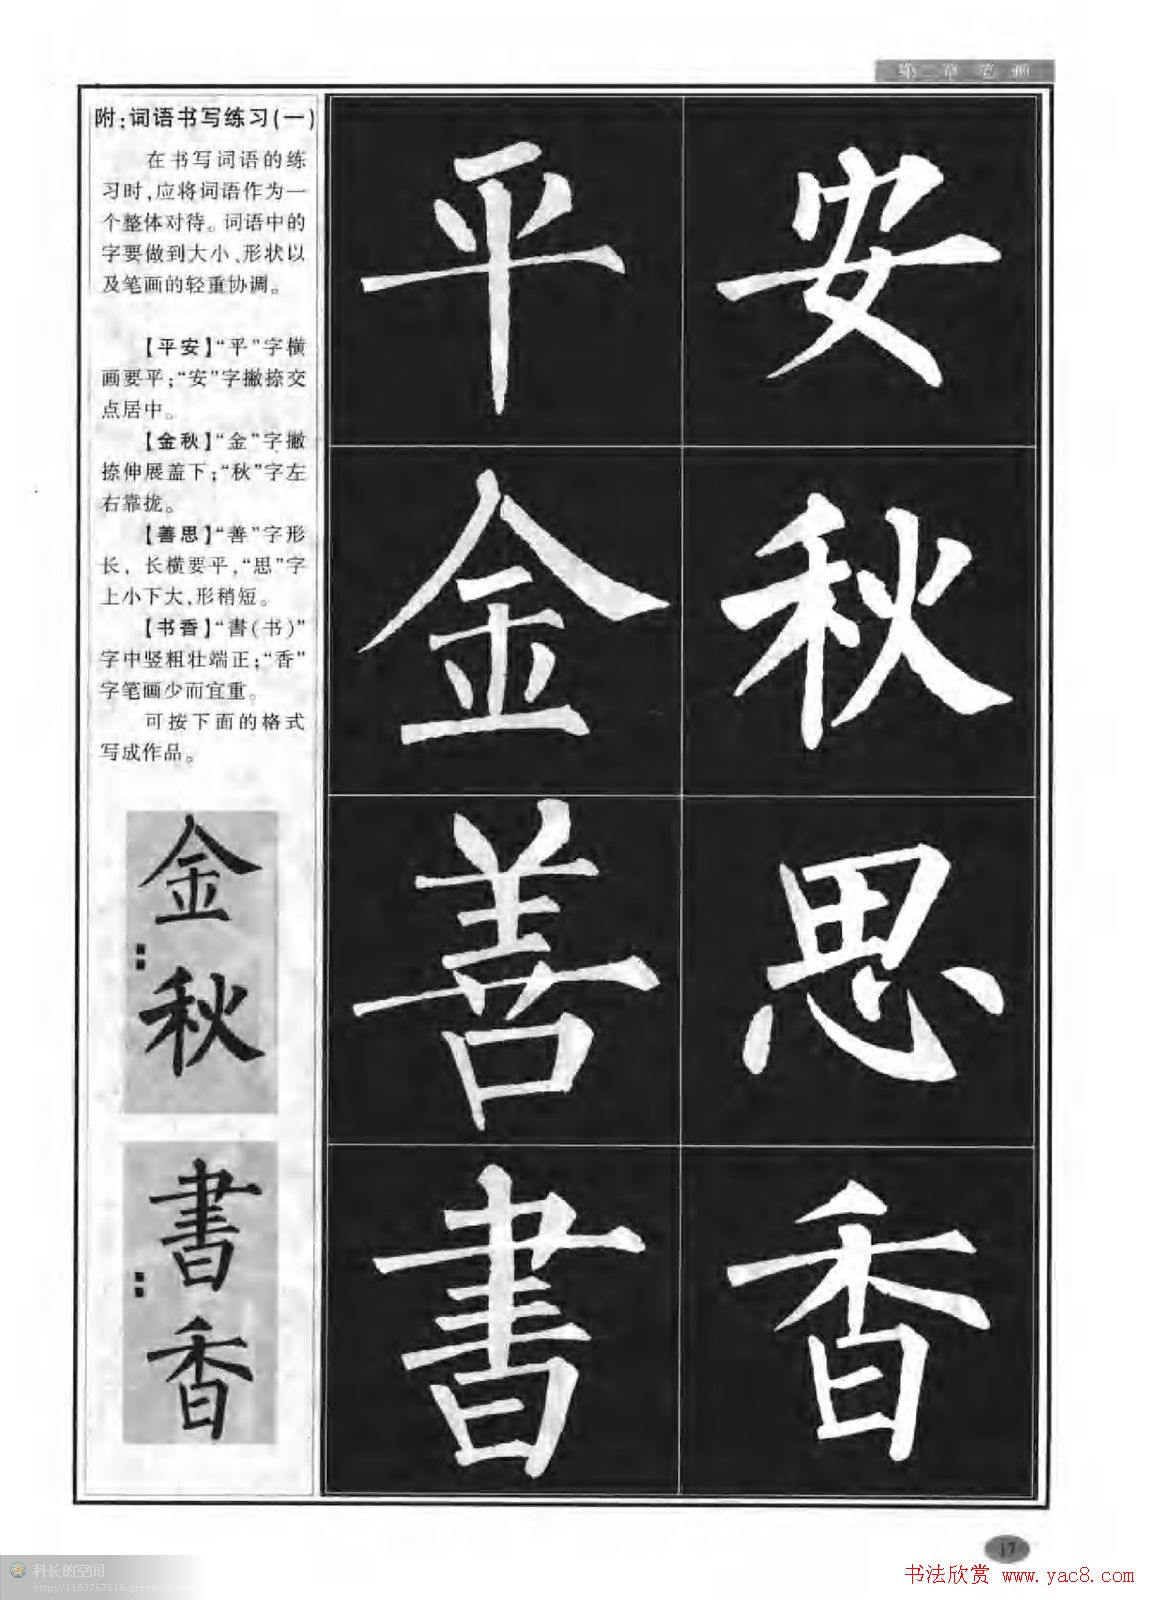 第二章 笔画
附:词语书写练习(一)
在书写词语的练
习时,应将词语作为一
个整体对待。词语中的
字要做到大小、形状以
及笔画的轻重协调。
【平安】“平”字横
画要平;“安”字撇捺交
点居中。
【金秋】“金”字撇
捺伸展盖下;“秋”字左
右靠拢。
【善思】“善”字形
长，长横要平,“思”字
上小下大,形稍短。
【书香】“書(书)”
字中竖粗壮端正;“香”
字笔画少而宜重。
可按下面的格式
写成作品。
金
秋
書
香
平 安
金 秋
善 思
書 香
17
科长的空间
http://1193767618.qzone.qq.com
书法欣赏 www.yac8.com